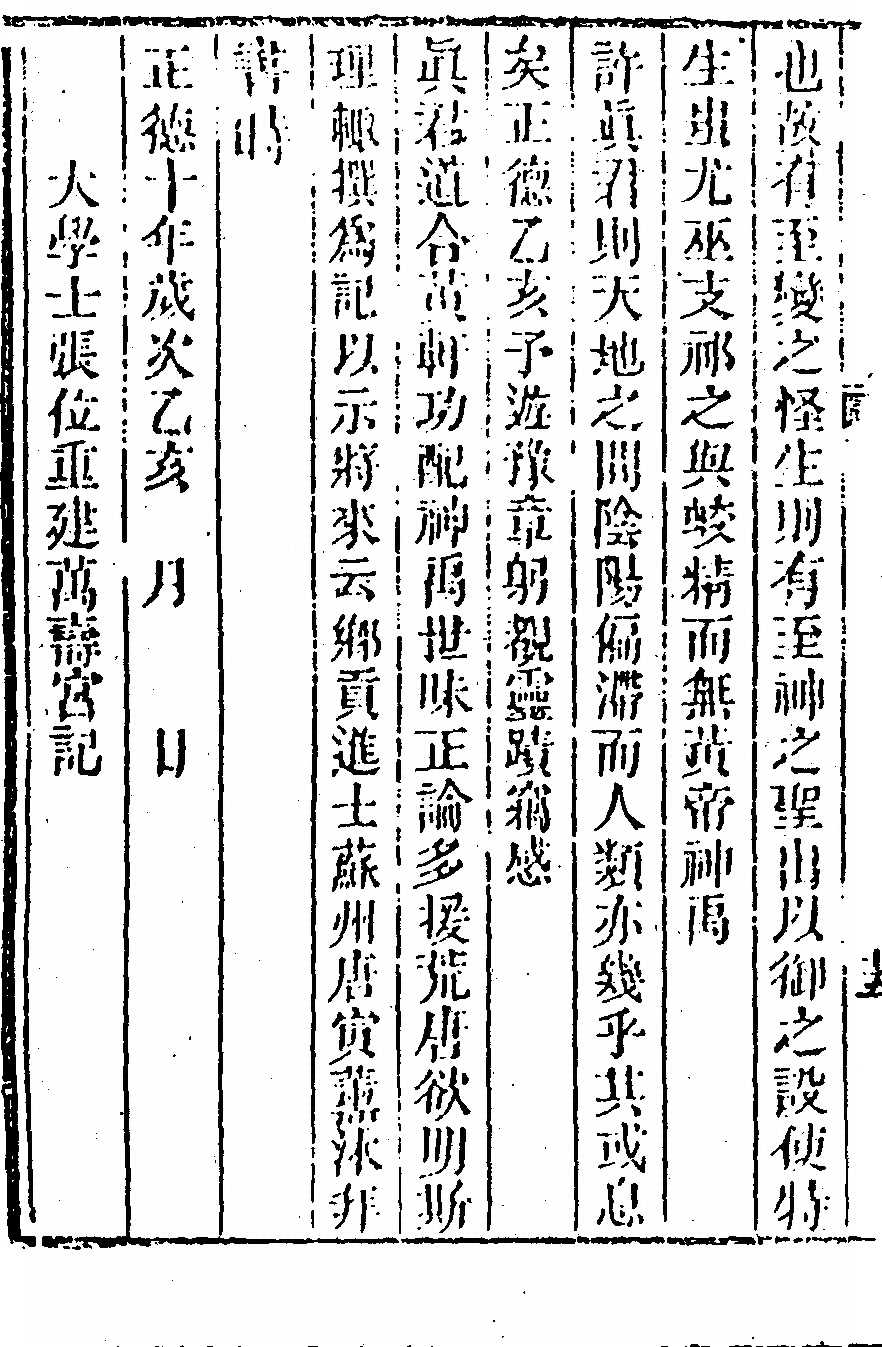 也故有至變之怪生則有至神之聖出以御之設使特
生蚩尤巫支祁之與蛟精而無黃帝神禹
許眞君則天地之間陰陽偏滯而人類亦幾乎其或息
矣正德乙亥予遊豫章躬觀靈蹟竊感
眞君道合黃軒功配神禹世味正論多援荒唐欲明斯
理輙撰爲記以示將來云鄉貢進士蘇州唐寅薰沐拜
書時
正德十年歲次乙亥　月　日
大學士張位重建萬壽宮記